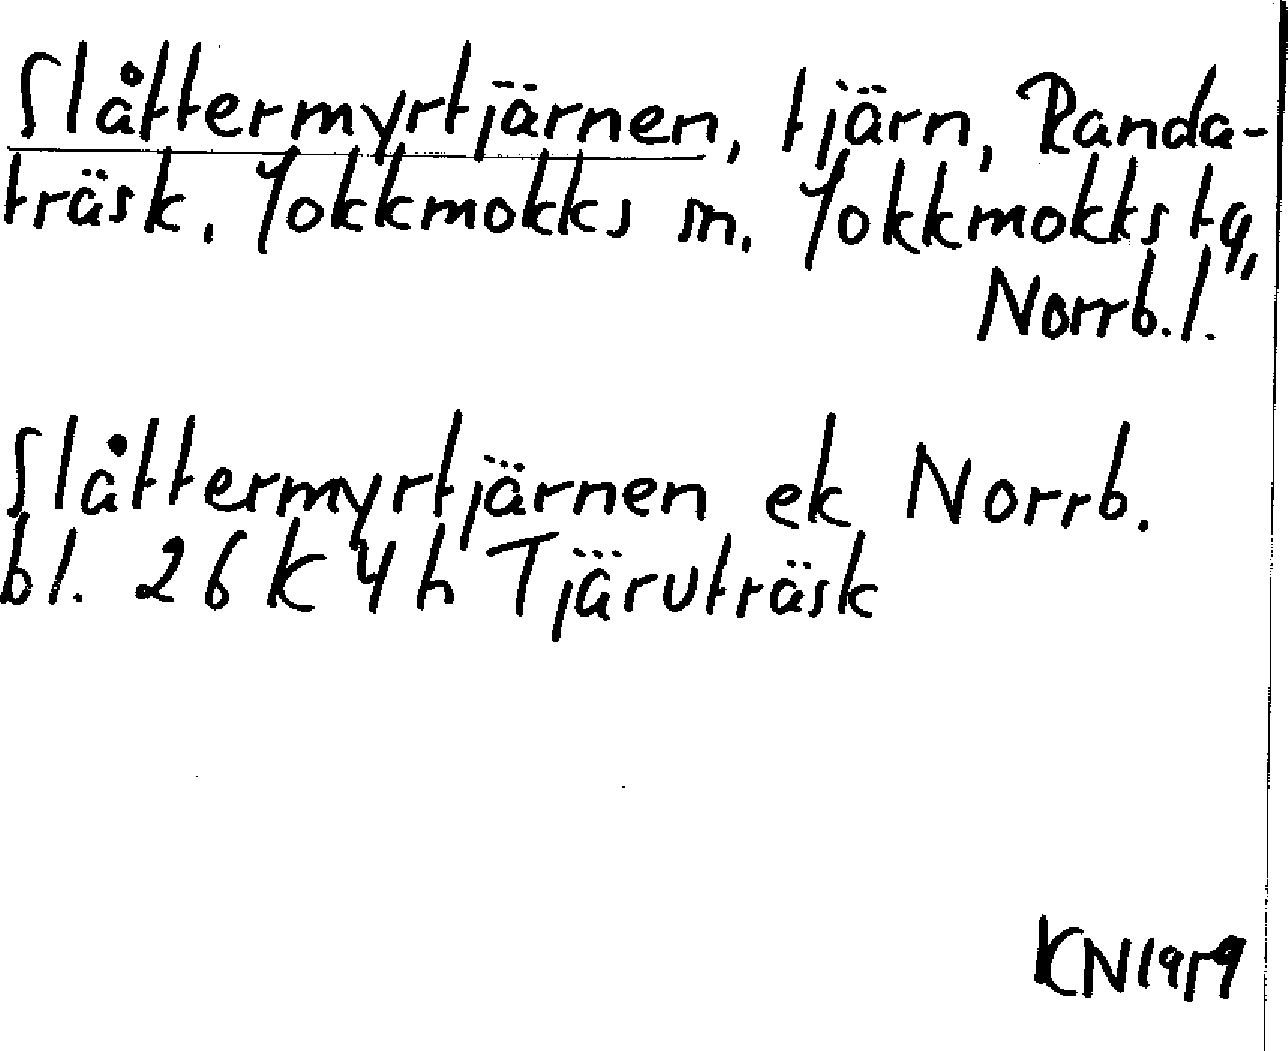 Slåttermyrtjärnen, tjärn, Randa-
träsk, Jokkmokks sn, Jokkmokks tg,
Norrb. l.
Slåttermyrtjärnen ek Norrb.
bl. 26 K 4 h Tjäruträsk